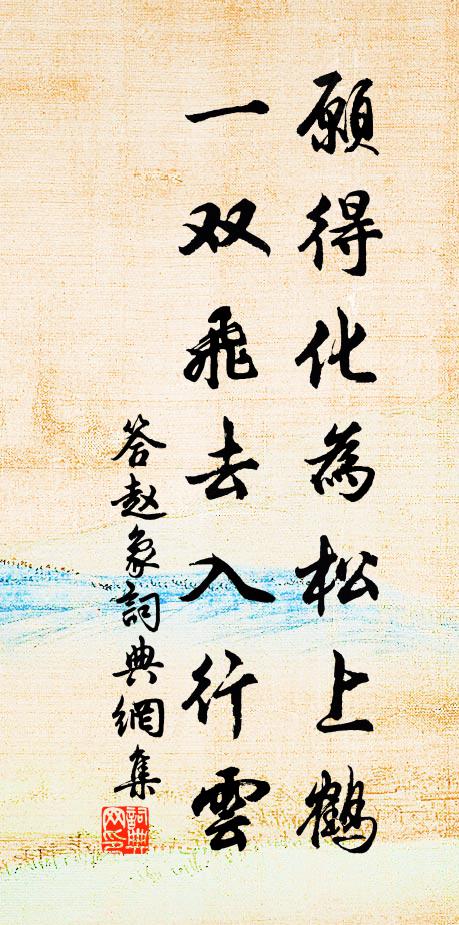 願得化為松上鶴
一双飛去入行雲
答赵象詞典網集
詞典網印